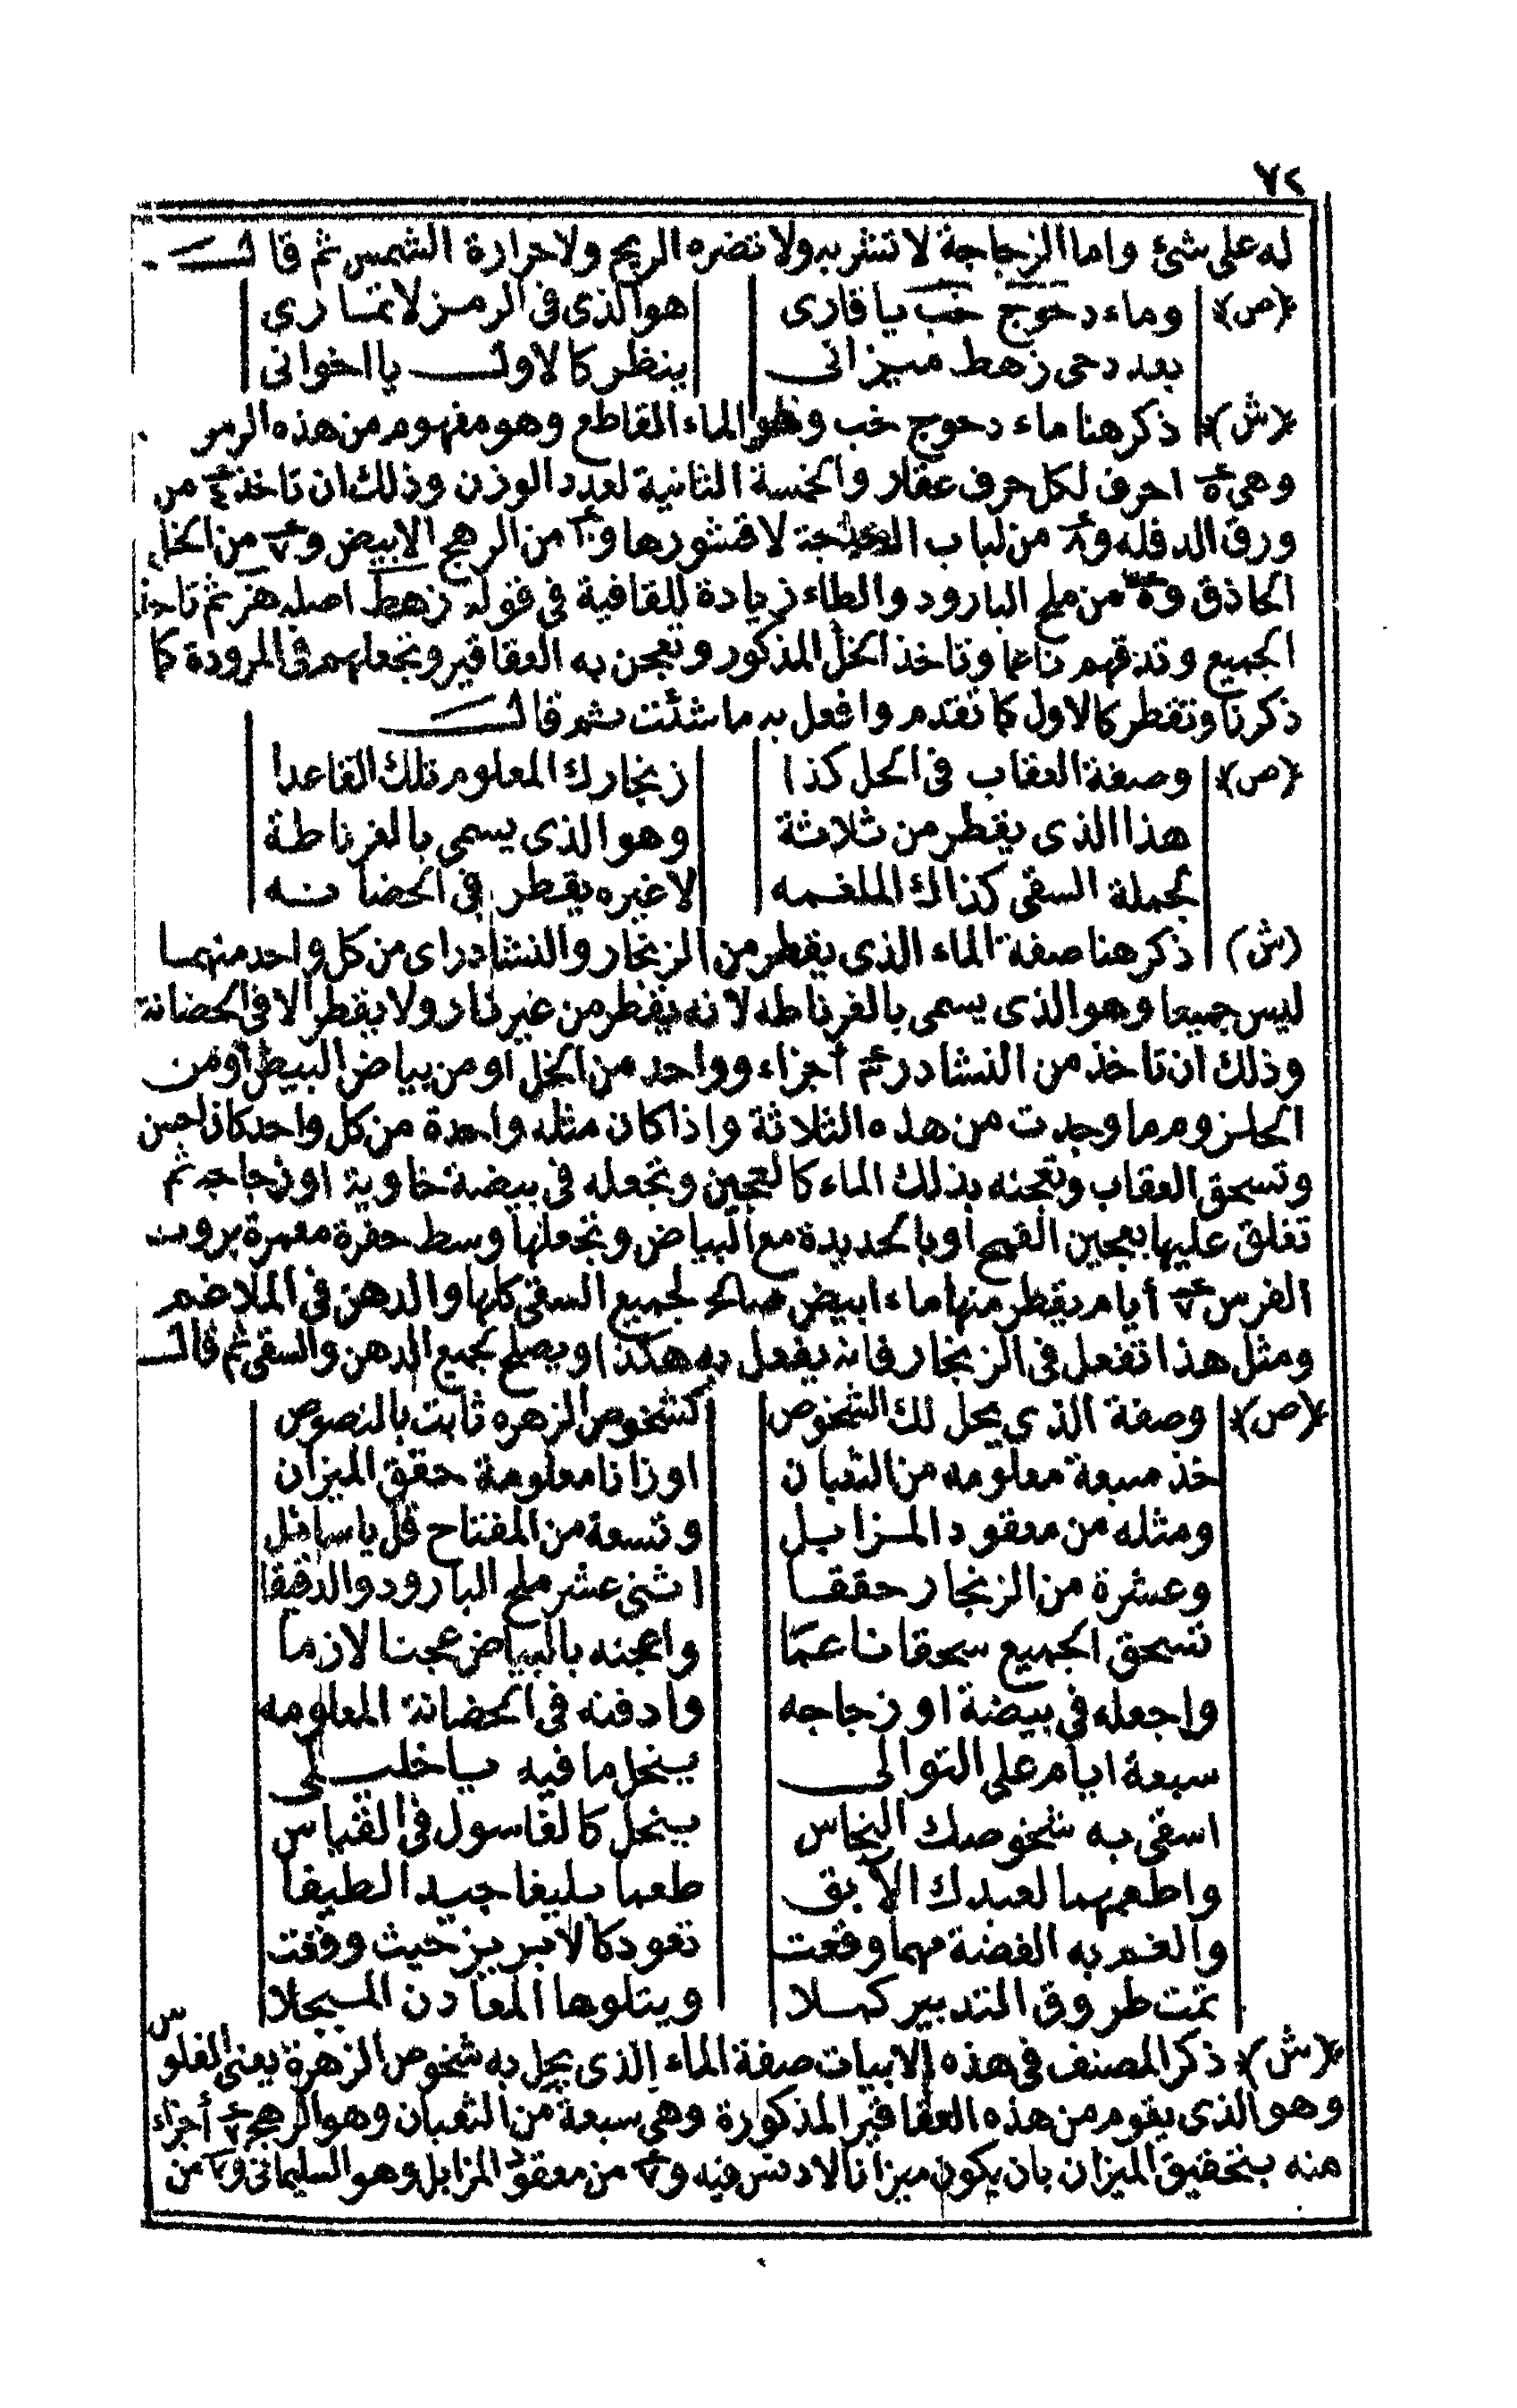 ٧٢
له على شئ واما الزجاجة لا تنثر به ولا تضره الريح ولا حرارة الشمس ثم قال
(ص) وماء دحوج خب يا قارى هو الذى فى الرمز لا تمارى
بعد دحى زهط ميزانى ينظر كالاول يا اخوانى
(ش) ذكر هنا ماء دحوج خب وهو الماء القاطع وهو مفهوم من هذه الرمز
وهى ٥ احرف لكل حرف عقار والخمسة الثانية لعدد الوزن وذلك ان تاخذ ٤ من
ورق الدفله و٨ من لباب لا قشورها و من الرهج الابيض و٧ من الخل
الحاذق و من ملح البارود والطاء زيادة للقافية فى قوله زهط اصله هز ثم تاخذ
الجميع وتدقهم ناعما وتاخذ الخل المذكور وتعجن به العقاقير وتجعلهم فى المرودة كما
ذكرنا وتقطر كالاول كما تقدم وافعل به ما شئت ثم قال
(ص) وصفة العقاب فى الحل كذا زنجارك المعلوم تلك القاعدا
هذا الذى يقطر من ثلاثة وهو الذى يسمى بالغرناطة
لجملة السقى كذاك الملغمه لا غيره يقطر فى الحضانه
(ش) ذكر هنا صفة الماء الذى يقطر من الزنجار والنشادر اى من كل واحد منهما
ليس جميعا وهو الذى يسمى بالغرناطه لانه يقطر من غير نار ولا يقطر الا فى الحضانة
وذلك ان تاخذ من النشادر أجزاء وواحد من الخل او من بياض البيض او من
الحلزوم ما وجدت من هذه الثلاثة واذا كان مثله واحدة من كل واحد كان احسن
وتسحق العقاب وتعجنه بذلك الماء كالعجين وتجعله فى بيضة خاوية او زجاجه ثم
تغلق عليها بعجين القمح او بالحديدة مع البياض وتجعلها وسط حفرة معمرة بروث
الفرس ٧ أيام يقطر منها ماء ابيض صالح لجميع السقى كلها والدهن فى الملاغم
ومثل هذا تفعل فى الزنجار فانه يفعل به هكذا ويصلح لجميع الدهن والسقى ثم قال
(ص) وصفة الذى يحل لك الشخوص كشخوص الزهره ثابت بالنصوص
خذ سبعة معلومه من الثعبان اوزانا معلومة حقق الميزان
ومثله من معقود المزابل وتسعة من المفتاح قل يا سائل
وعشرة من الزنجار حققا اثنى عشر ملح البارود والدققا
تسحق الجميع سحقا ناعما واعجنه بالبياض عجنا لازما
واجعله فى بيضة او زجاجه وادفنه فى الحضانة المعلومه
سبعة ايام على التوالى ينحل ما فيه يا خليلى
اسقى به شخوصك النحاس ينحل كالغاسول فى القياس
واطعمهما لعبدك الآبق طعما بليغا جيد الطيفا
والغم به الفضة مهما وقعت تعود كالابريز حيث وقفت
تمت طروق التدبير كملا ويتلوها المعادن المسجلا
(ش) ذكر المصنف فى هذه الابيات صفة الماء الذى يحل به شخوص الزهرة يعنى الفلوس
وهو الذى يقوم من هذه العقاقير المذكورة وهى سبعة من الثعبان وهو الرهج ٧ أجزاء
منه بتحقيق الميزان بان يكون ميزانا لا دنس فيه و٧ من معقود المزابل وهو السليمانى و٩ من